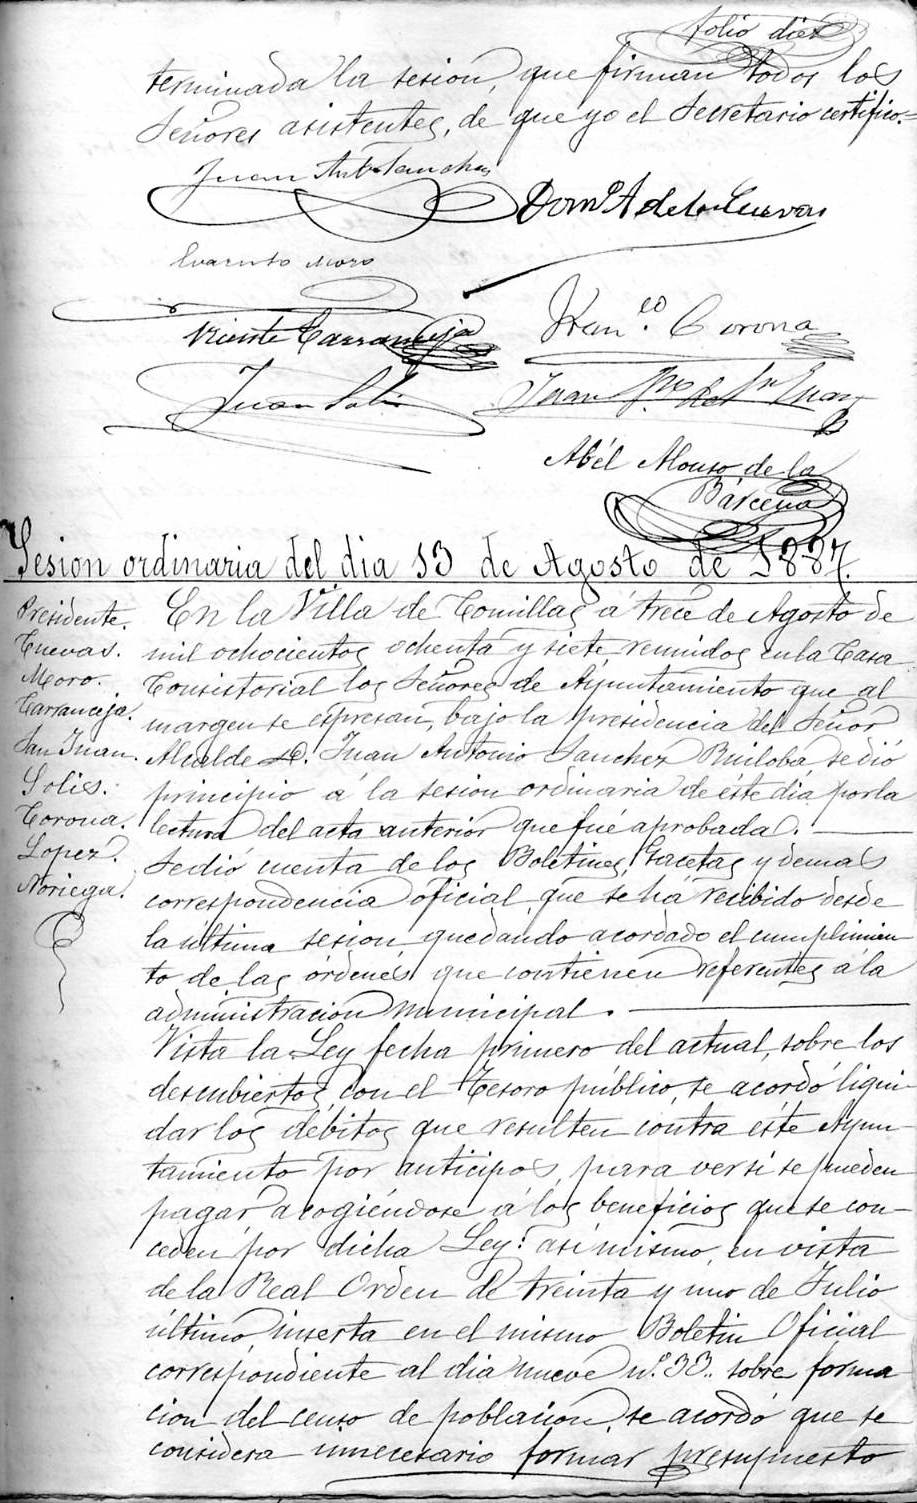 folio diez
terminada la sesion, que firman todos los
Señores asistentes, de que yo el Secretario certifico.=
Juan Ant.º Sanchez
Dom.º A de las Cuevas
Evaristo Moro
Vicente Carranceja
Fran.co Corona
Juan Solis
Juan de Sn Juan
Abél Alonso de la
Bárcena
Sesion ordinaria del dia 13 de Agosto de 1887.
Presidente.
Cuevas.
Moro.
Carranceja.
San Juan.
Solis.
Corona.
Lopez.
Noriega.
En la Villa de Comillas á trece de Agosto de
mil ochocientos ochenta y siete reunidos en la Casa
Consistorial los Señores de Ayuntamiento que al
margen se espresan, bajo la presidencia del Señor
Alcalde D. Juan Antonio Sanchez Ruiloba se dió
principio á la sesion ordinaria de éste dia por la
lectura del acta anterior que fué aprobada.
Se dió cuenta de los Boletines, Gacetas y demas
correspondencia oficial que se ha recibido desde
la ultima sesion quedando acordado el cumplimien
to de las órdenes que contienen referentes á la
administracion municipal.
Vista la Ley fecha primero del actual, sobre los
descubiertos con el Tesoro público, se acordó liqui-
dar los débitos que resulten contra éste Ayun-
tamiento por anticipos, para ver si se pueden
pagar acogiéndose á los beneficios que se con-
ceden por dicha Ley: asi mismo, en vista
de la Real Orden de treinta y uno de Julio
último inserta en el mismo Boletin Oficial
correspondiente al dia nueve n.º 33.. sobre forma
cion del censo de poblacion, se acordó que se
considera innecesario formar presupuesto